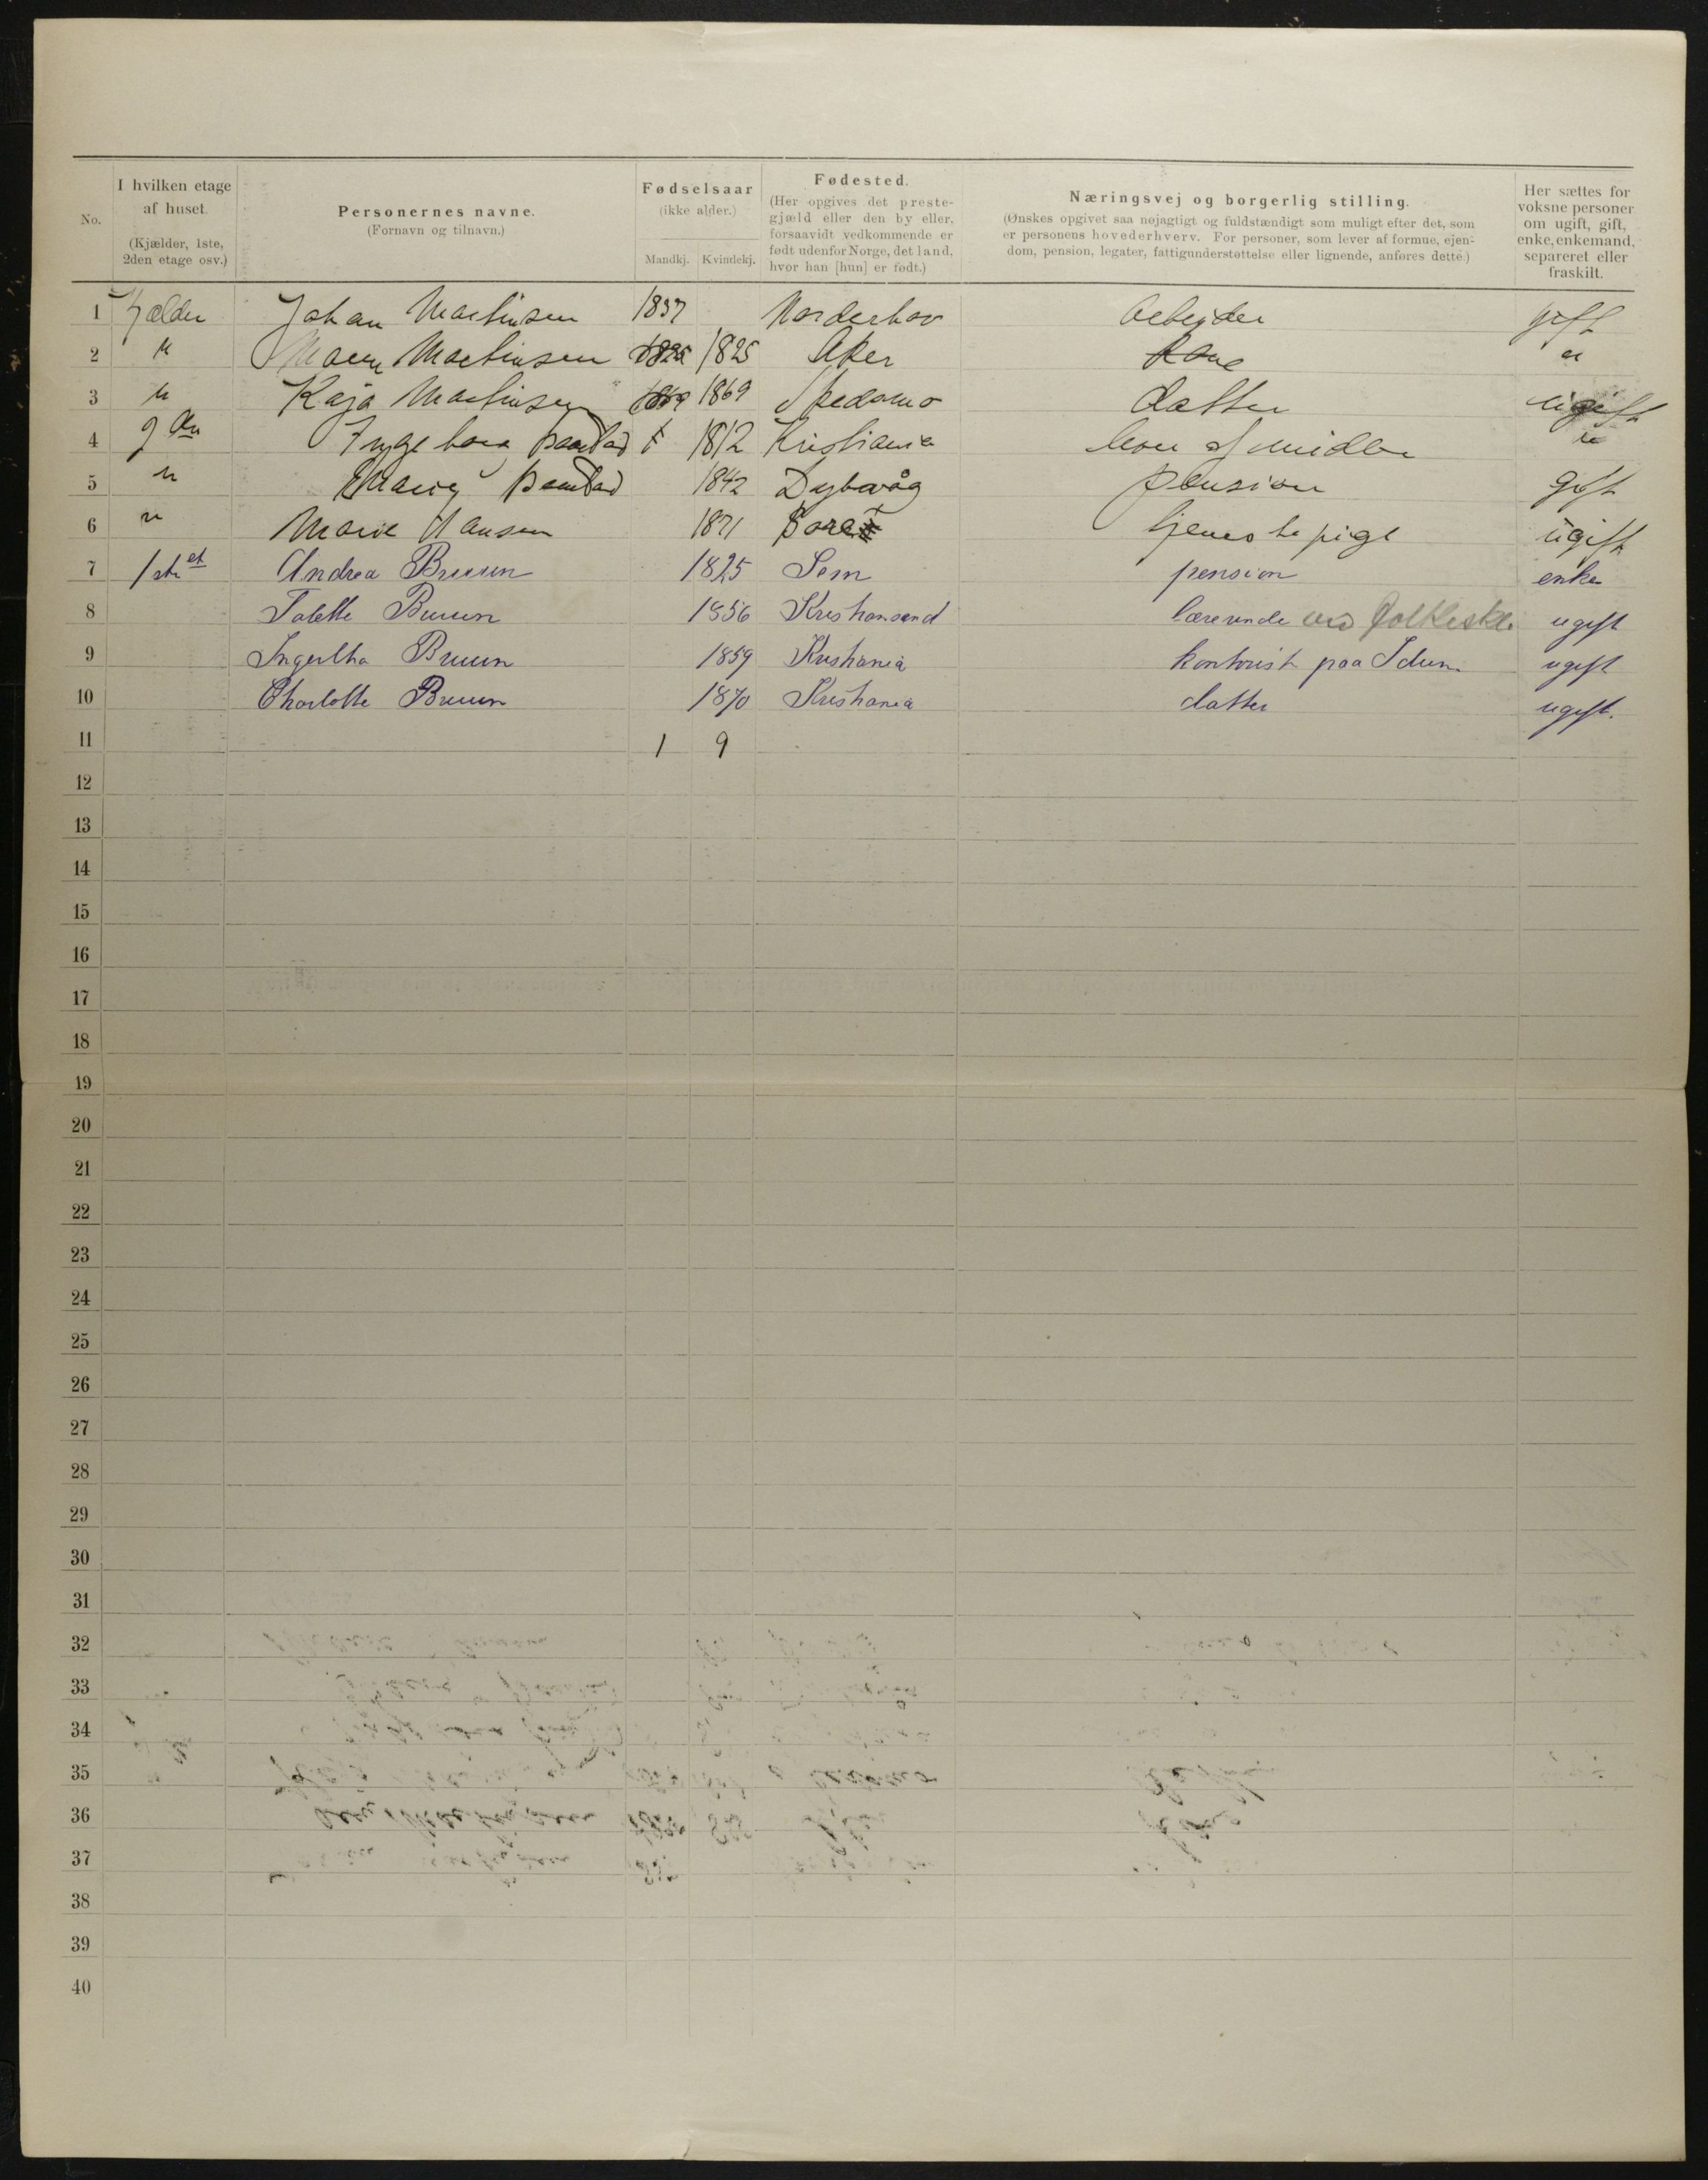 No.
I hvilken etage af huset.
(Kjælder, 1ste, 2den etage osv.)
Personernes navne.
(Fornavn og tilnavn.)
Fødselsaar
(ikke alder.)
Mandkj. Kvindekj.
Fødested.
(Her opgives det preste-
gjæld eller den by eller,
forsaavidt vedkommende er
født udenfor Norge, det land,
hvor han [hun] er født.)
Næringsvej og borgerlig stilling.
(Ønskes opgivet saa nøjagtigt og fuldstændigt som muligt efter det, som
er personens hovederhverv. For personer, som lever af formue, ejen-
dom, pension, legater, fattigunderstøttelse eller lignende, anføres dette.)
Her sættes for
voksne personer
om ugift, gift,
enke, enkemand,
separeret eller
fraskilt.
1 Kjælder Johan Martinsen 1837 Norderhov Arbejder gift
2 " Maren Martinsen 1825 1825 Aker Kone "
3 " Kaja Martinsen 1869 1869 Skedsmo datter ugift
4 Ingeborg 1812 Kristiania lever af midler "
5 " 1842 Dybvåg pension gift
6 " Marie Hansen 1871 tjenestepige ugift
7 1ste et Andrea Bruun 1825 Sem pension enke
8 Tolette Bruun 1856 Kristiansand lærerinde ved Folkeskl. ugift
9 Bruun 1859 Kristiania kontorist paa Idun ugift
10 Charlotte Bruun 1870 Kristiania datter ugift.
11 1 9
12
13
14
15
16
17
18
19
20
21
22
23
24
25
26
27
28
29
30
31
32
33
34
35
36
37
38
39
40